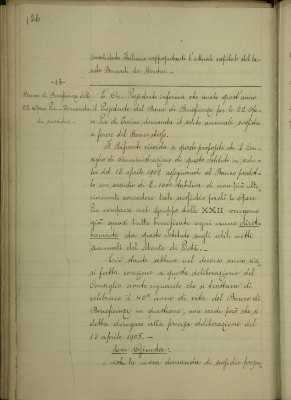 126
consolidato Italiano rappresentanti l'attuale capitale del la-
scito Bernardi de
- 13 -
Banco di Beneficenza delle
22 Opere Pie - Domanda
di sussidio
L' On. Presidente informa che anche quest'anno
il Presidente del Banco di Beneficenza per le 22 Ope-
re Pie di domanda il solito annuale sussidio
a favore del Banco stesso.
Il Referente ricorda a questo proposito che il Con-
siglio di Amministrazione di questo Istituto in sedu-
ta del 18 aprile 1905 assegnando al Banco predet-
to un sussidio di L. 1000 stabiliva di non più ulte-
riormente concedere tale sussidio perchè le Opere
Pie comprese nel Gruppo delle XXII vengono
già quasi tutte beneficate ogni anno diret-
tamente da questo Istituto sugli utili netti
annuali del Monte di Pietà. -
Ciò stante sebbene nel decorso anno sia-
si fatta eccezione a questa deliberazione del
Consiglio avuto riguardo che si trattava di
celebrare il 40° anno di vita del Banco di
Beneficenza in questione, non crede però che si
debba derogare alla precisa deliberazione del
18 aprile 1905. -
La Giunta:
- vista la nuova domanda di sussidio